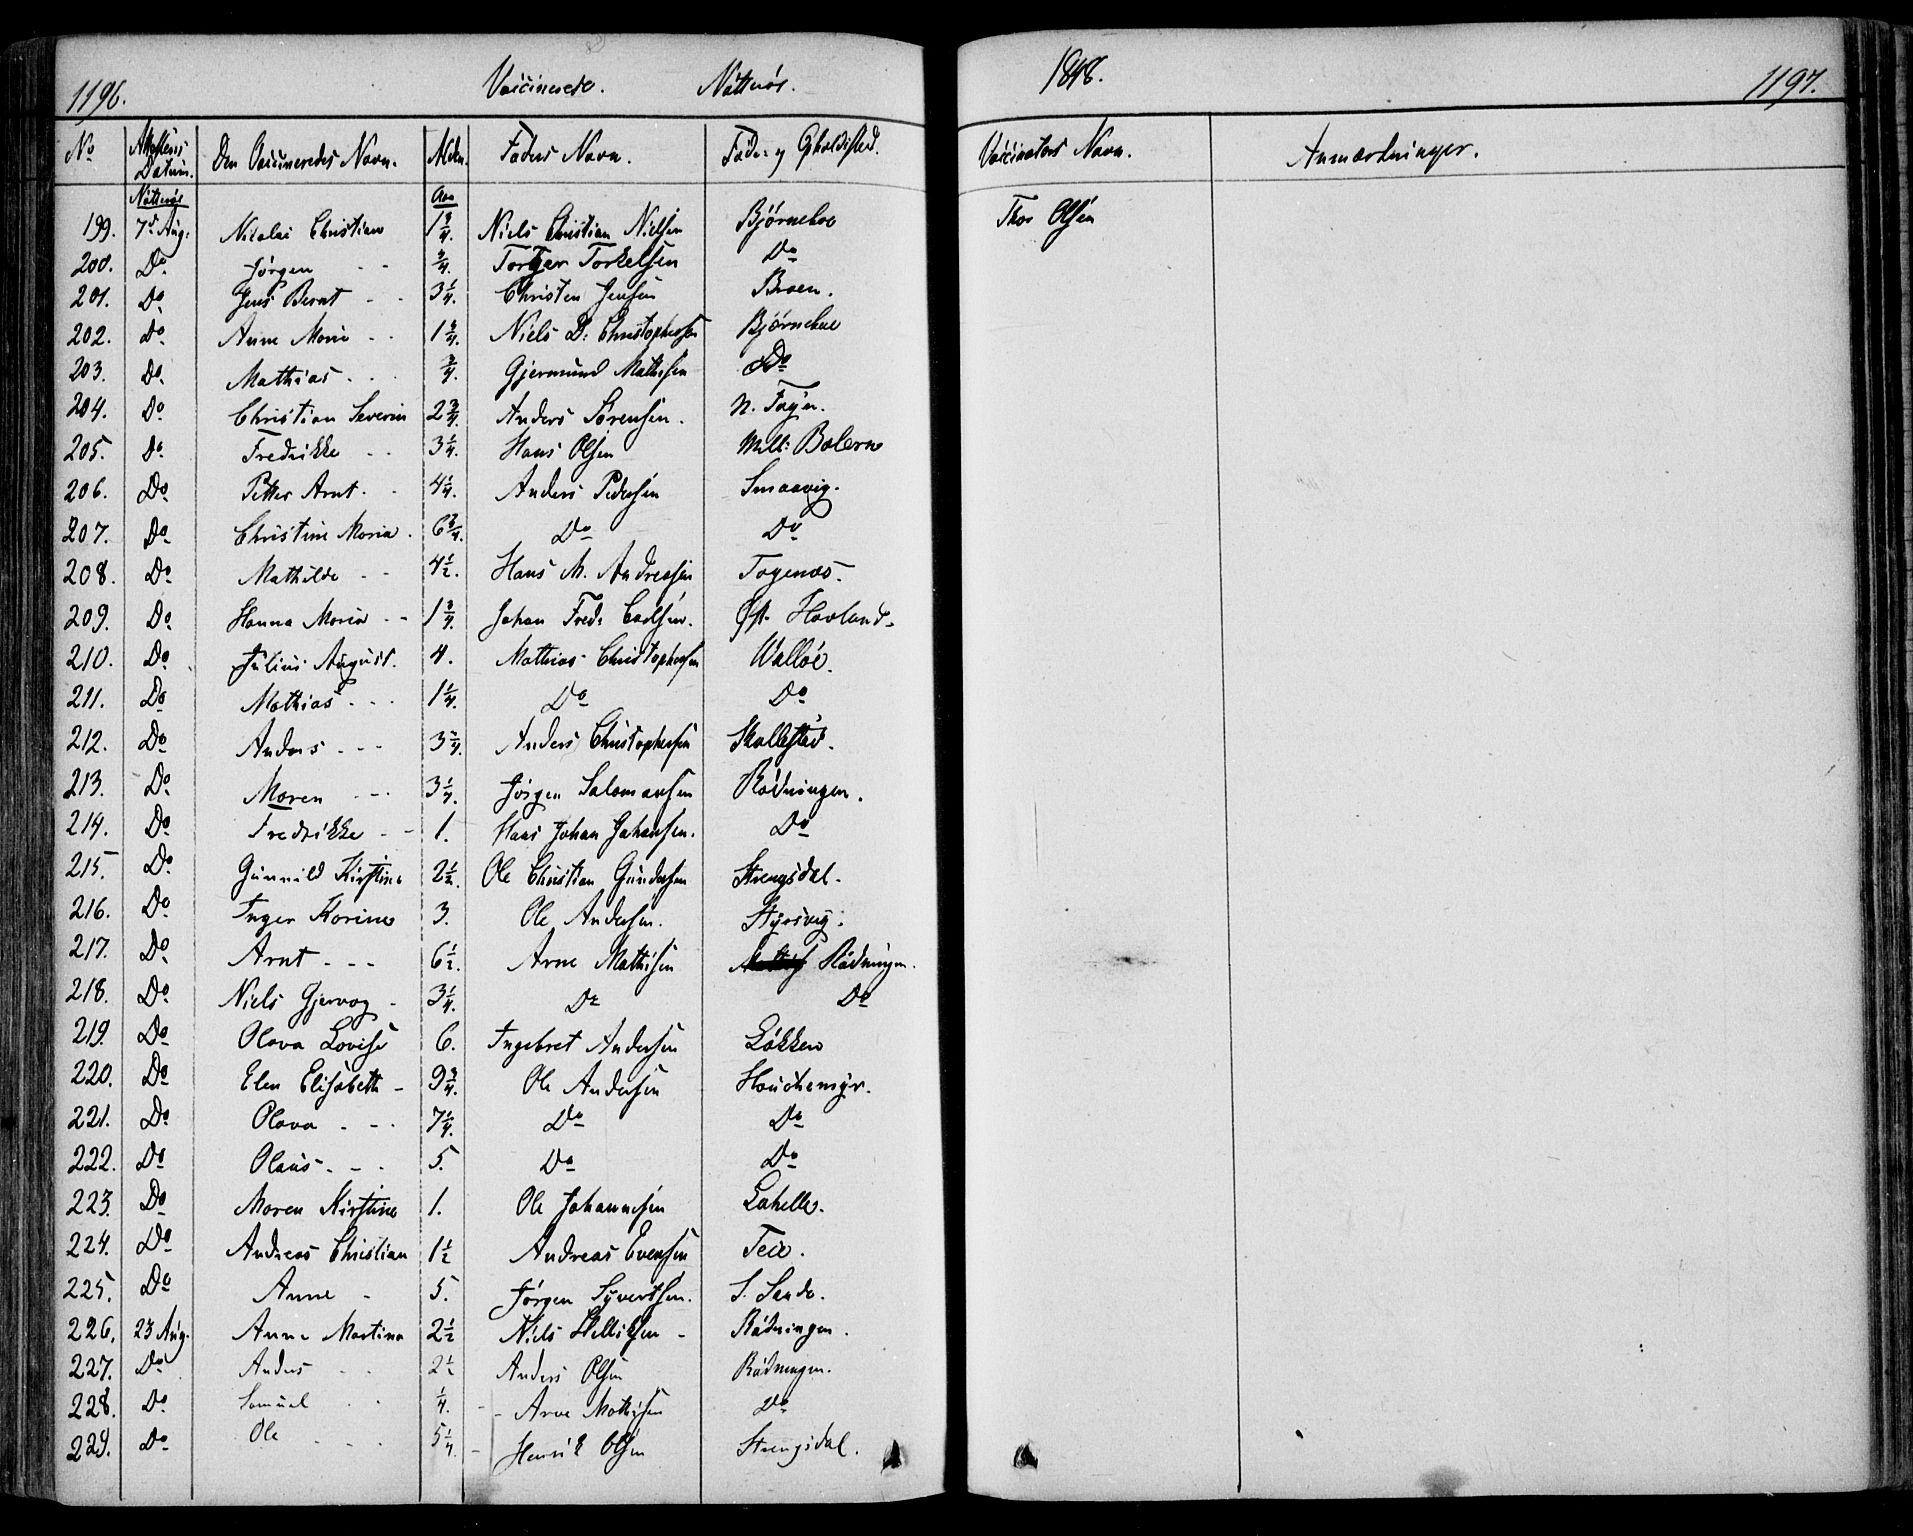 1196. Vaccinerede. Nøtterøe. 1848. 1197.
No Attestens Datum. Den Vaccineredes Navn. Alder. Faders Navn. Føde- og Opholdsted. Vaccinators Navn. Anmærkninger.
Nøtterøe Aar
199. 7de Aug. Nicolai Christian 1 3/4. Niels Christian Nielsen Bjørneboe Thor Olsen
200. Do Jørgen - - 3/4. Torger Torkelsen Do
201. Do Jens Bernt - - 3 1/4. Christen Jensen Broen.
202. Do Anne Maria - - 1 3/4. Niels D: Christophersen Bjørneboe
203. Do Mathias - - 3/4. Gjermund Mathisen Do
204. Do Christian Severin 2 3/4. Anders Sørensen. N. Føyn.
205. Do Fredrikke - - 3 1/4. Hans Olsen Mell: Bolærne
206. Do Petter Arnt - - 4 1/4. Anders Pedersen Smaavig.
207. Do Christine Maria. 6 3/4. Do Do
208. Do Mathilde - - 4 1/2. Hans M. Andresen Togenæs.
209. Do Hanna Maria - - 1 3/4. Johan Fredr Carlsen. Øst. Havland.
210. Do Julius August. 4. Mathias Christophersen Walløe.
211. Do Mathias - - - 1 1/4. Do Do
212. Do Anders - - - 3 1/4. Anders Christophersen Skallestad.
213. Do Maren - - - 3 1/4. Jørgen Salomonsen Rødningen.
214. Do Fredrikke - - 1. Hans Johan Johansen. Do
215. Do Gunnild Kirstine 2 1/2. Ole Christian Gundersen Strengsdal.
216. Do Inger Karine 3. Ole Andersen. Styrsvig.
217. Do Arnt - - - 6 1/2. Arne Mathisen Rødningen.
218. Do Niels Gjervog - 3 1/4. Do Do
219. Do Olava Lovise 6. Ingebret Andersen Løkken
220. Do Elen Elisabeth - 9 3/4. Ole Andersen Houchemyr.
221. Do Olava - - - 7 1/4. Do Do
222. Do Olaus - - - 5. Do Do
223. Do Maren Kirstine 1. Ole Johannesen Lahelle.
224. Do Andreas Christian 1 1/2 Andreas Evensen Teie.
225. Do Anne - 5. Jørgen Syvertsen. S. Sande.
226. 23 Aug. Anne Martina 2 1/2 Niels Helliksen - Rødningen.
227. Do Anders - - 2 1/2 Anders Olsen Rødningen.
228. Do Samuel - - 1/4. Arne Mathisen Do
229. Do Ole - - - 5 1/4. Henrik Olsen Strengsdal.